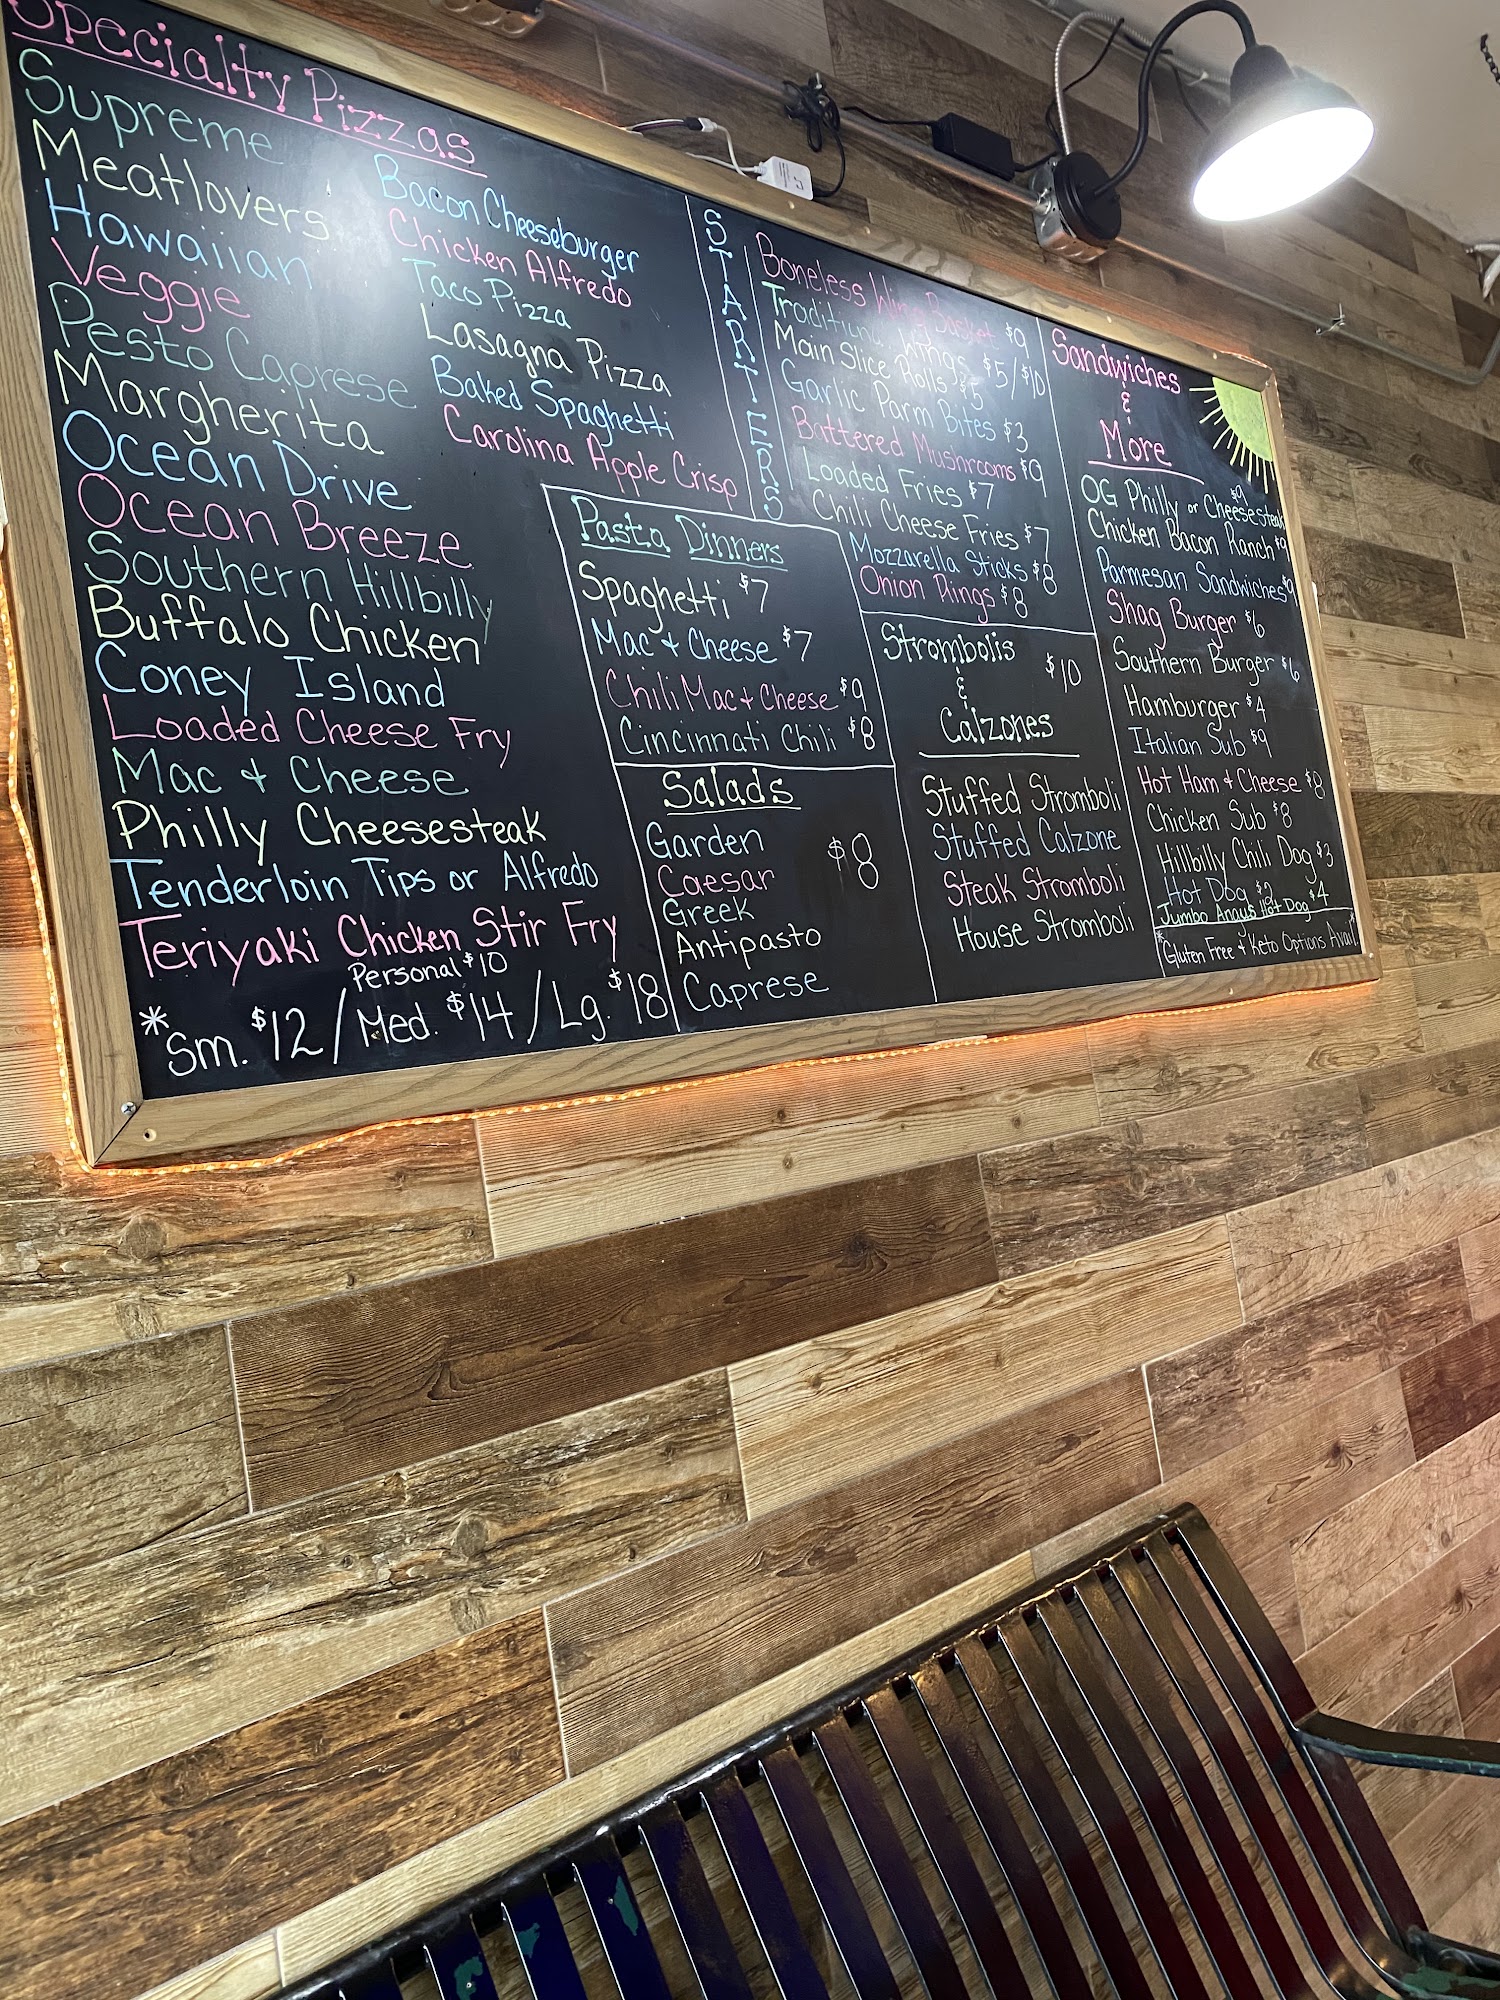 Specialty Pizzas
Supreme
Meatlovers
Hawaiian
Veggie
Pesto Caprese
Margherita
Ocean Drive
Ocean Breeze
Southern Hillbilly
Buffalo Chicken
Coney Island
Loaded Cheese Fry
Mac & Cheese
Philly Cheesesteak
Tenderloin Tips or Alfredo
Teriyaki Chicken Stir Fry
Bacon Cheeseburger
Chicken Alfredo
Taco Pizza
Lasagna Pizza
Baked Spaghetti
Carolina Apple Crisp
Personal $10
*Sm. $12/Med. $14/Lg. $18
STARTERS
Boneless Wing Basket $9
Traditional Wings $5/$10
Main Slice Rolls $5
Garlic Parm Bites $3
Battered Mushrooms $9
Loaded Fries $7
Chili Cheese Fries $7
Mozzarella Sticks $8
Onion Rings $8
Pasta Dinners
Spaghetti $7
Mac & Cheese $7
Chili Mac & Cheese $9
Cincinnati Chili $8
Salads
$8
Garden
Caesar
Greek
Antipasto
Caprese
Strombolis
&
Calzones
$10
Stuffed Stromboli
Stuffed Calzone
Steak Stromboli
House Stromboli
Sandwiches
&
More
OG Philly or Cheesesteak $9
Chicken Bacon Ranch $9
Parmesan Sandwiches $9
Shag Burger $6
Southern Burger $6
Hamburger $4
Italian Sub $9
Hot Ham & Cheese $8
Chicken Sub $8
Hillbilly Chili Dog $3
Hot Dog $2
Jumbo Angus Hot Dog $4
*Gluten Free & Keto Options Avail.*